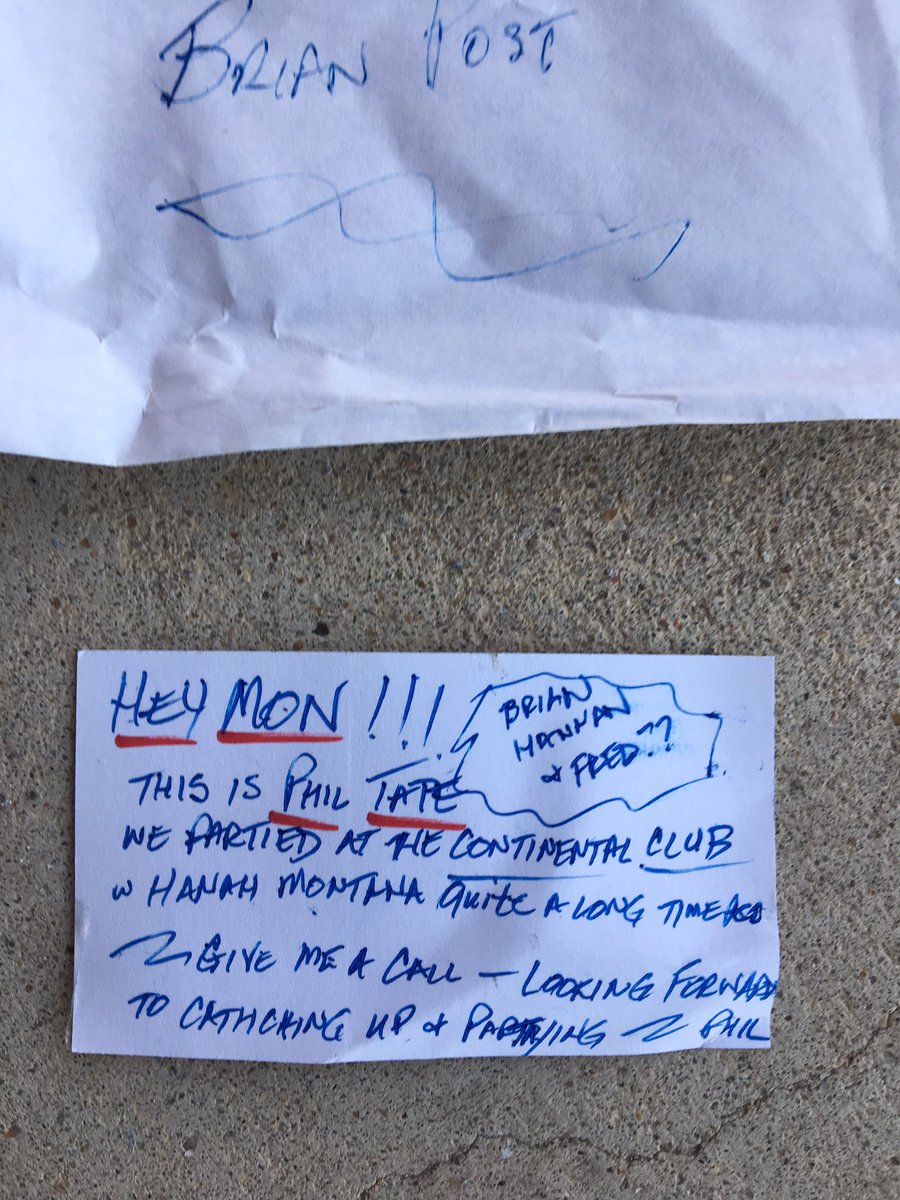 BRIAN POST
HEY MON !!!
BRIAN
HANNAN
& FRED??
THIS IS PHIL TAPE
WE PARTIED AT THE CONTINENTAL CLUB
W HANAH MONTANA QUITE A LONG TIME AGO
GIVE ME A CALL – LOOKING FORWARD
TO CATHCKING UP & PARTYING ~ PHIL